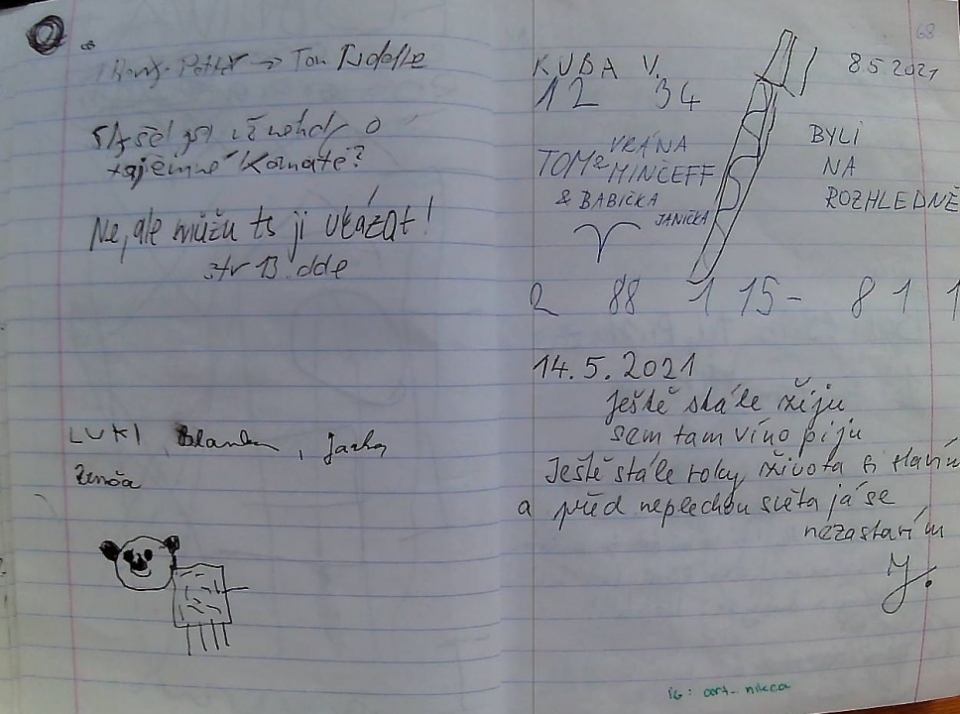 Harry Potter → Tom Riddle
Slyšel jsi už někdy o
tajemné Komnatě?
Ne, ale můžu ti ji ukázat!
str 13. dde
LUKI, Blanka, Jarka,
Zenoa
68
KUBA V. 8.5.2021
12 34
VRÁNA
TOM & MINČEFF
& BABIČKA
JANIČKA
BYLI
NA
ROZHLEDNĚ
2 88 1 15- 8 1 1
14.5.2021
Ještě stále žiju
sem tam víno piju
Ještě stále roky života si slavím
a před neplechou světa já se
nezastavím
J.
IG: art_nikca